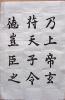 乃上帝玄
符天子令
德豈臣之